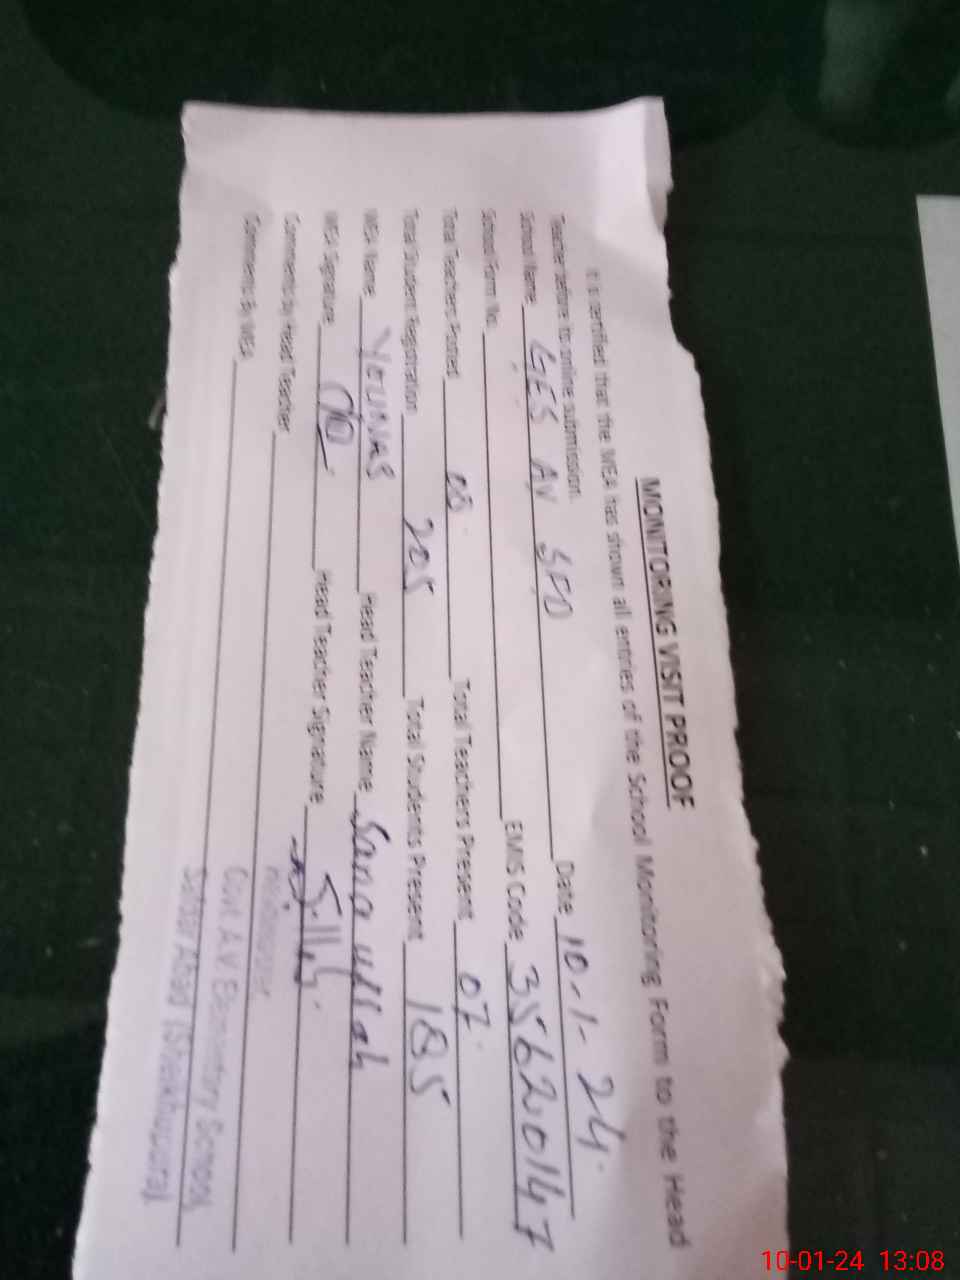 MONITORING VISIT PROOF
It is certified that the MEA has shown all entries of the School Monitoring Form to the Head
Teacher before to online submission.
School Name GES AV SFD Date 10-1-24.
School Form No. EMIS Code 35620147
Total Teachers Posted 08 Total Teachers Present 07
Total Student Registration 205 Total Students Present 185
MEA Name YOUNAS Head Teacher Name Sana ullah
MEA Signature Head Teacher Signature
Comments by Head Teacher
Headmaster
Comments by MEA
Govt. A.V Elementary School,
Safdar Abad (Sheikhupura)
10-01-24 13:08